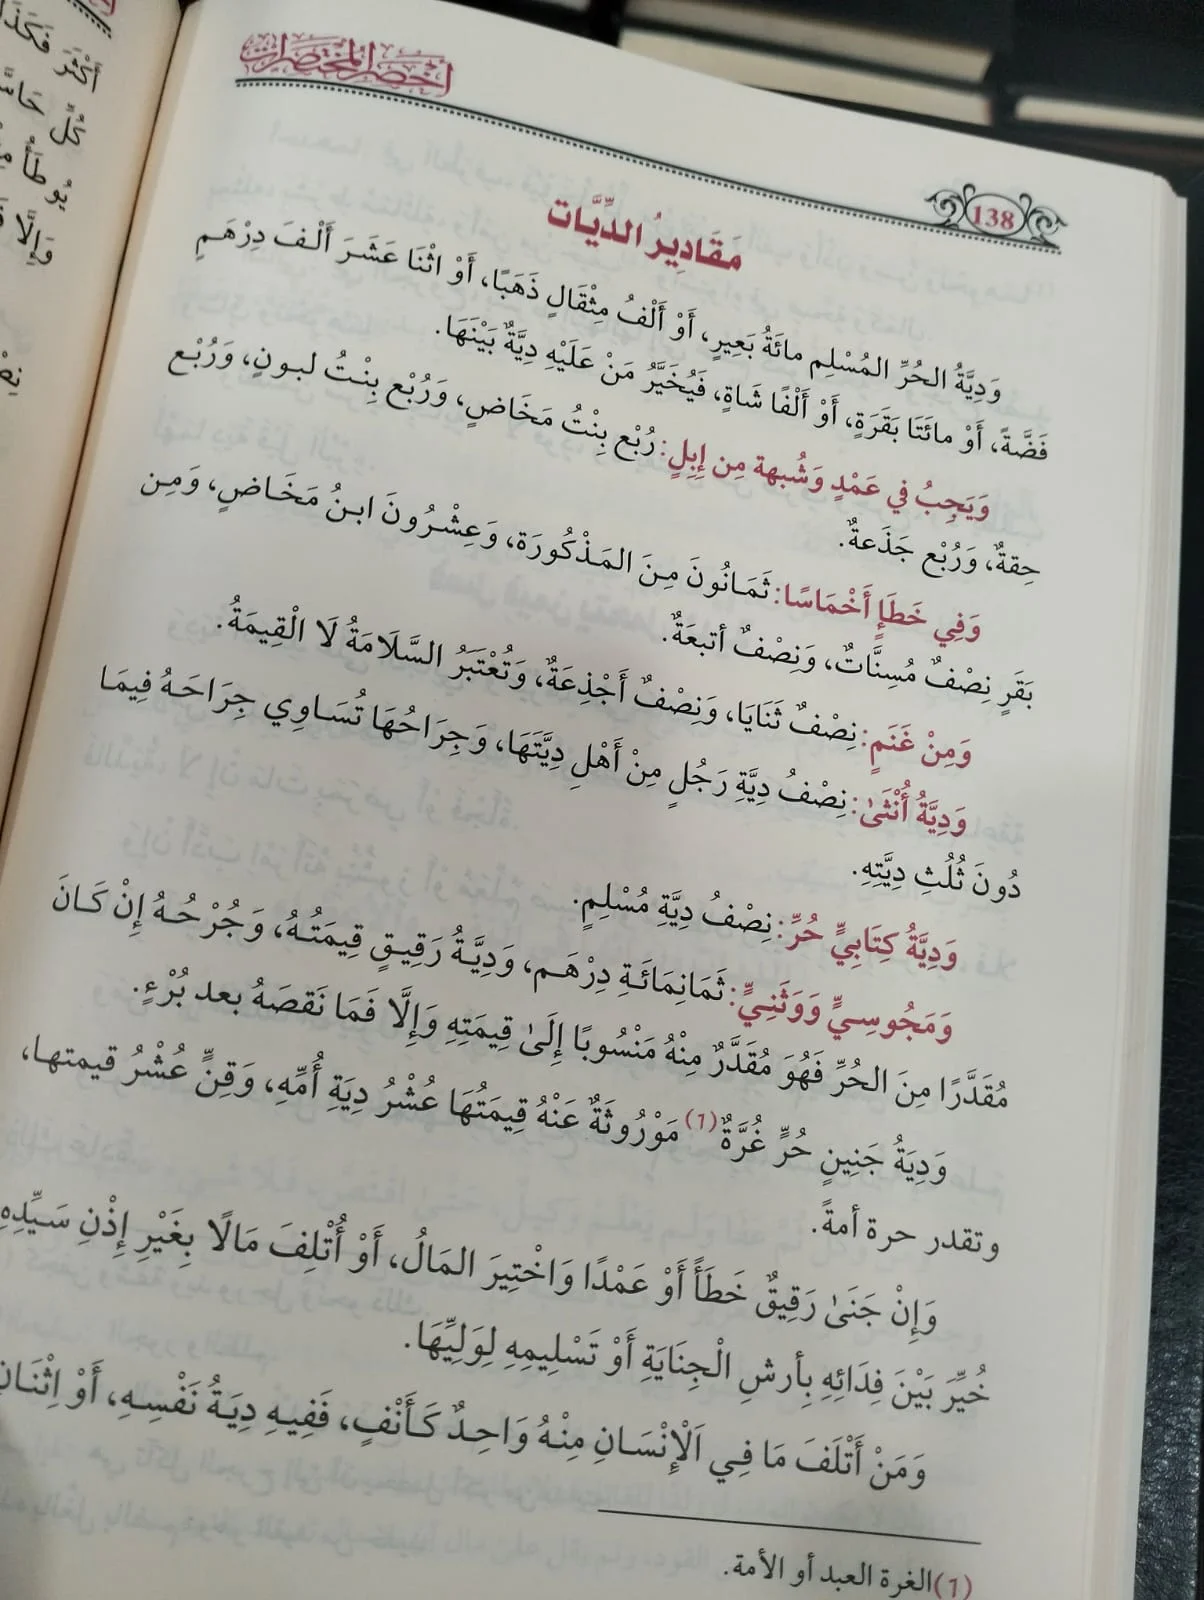 أخصر المختصرات
138
مَقَادِيرُ الدِّيَّات
وَدِيَّةُ الحُرِّ المُسْلِم مائَةُ بَعِيرٍ، أَوْ أَلْفُ مِثْقَالٍ ذَهَبًا، أَوْ اثْنَا عَشَرَ أَلْفَ دِرْهَمٍ
فَضَّةً، أَوْ مائَتَا بَقَرَةٍ، أَوْ أَلْفَا شَاةٍ، فَيُخَيَّرُ مَنْ عَلَيْهِ دِيَّةٌ بَيْنَهَا.
وَيَجِبُ في عَمْدٍ وَشُبهة مِن إِبِلٍ: رُبْع بِنْتُ مَخَاضٍ، وَرُبْع بِنْتُ لبونٍ، وَرُبْع
حِقةٌ، وَرُبْع جَذَعةٌ.
وَفِي خَطَإٍ أَخْمَاسًا: ثَمَانُونَ مِنَ المَذْكُورَة، وَعِشْرُونَ ابنُ مَخَاضٍ، وَمِن
بَقَرٍ نِصْفٌ مُسِنَّاتٌ، وَنِصْفٌ أتبعَةٌ.
وَمِنْ غَنَمٍ: نِصْفٌ ثَنَايَا، وَنِصْفٌ أَجْذِعَةٌ، وَتُعْتَبَرُ السَّلَامَةُ لَا الْقِيمَةُ.
وَدِيَّةُ أُنْثَىٰ: نِصْفُ دِيَّةِ رَجُلٍ مِنْ أَهْلِ دِيَّتَهَا، وَجِرَاحُهَا تُسَاوِي جِرَاحَهُ فِيمَا
دُونَ ثُلُثِ دِيَّتِهِ.
وَدِيَّةُ كِتَابِيٍّ حُرٍّ: نِصْفُ دِيَّةِ مُسْلِمٍ.
وَمَجُوسِيٍّ وَوَثَنِيٍّ: ثَمَانِمَائَةِ دِرْهَم، وَدِيَّةُ رَقِيقٍ قِيمَتُهُ، وَجُرْحُهُ إِنْ كَانَ
مُقَدَّرًا مِنَ الحُرِّ فَهُوَ مُقَدَّرٌ مِنْهُ مَنْسُوبًا إِلَىٰ قِيمَتِهِ وَإِلَّا فَمَا نَقصَهُ بعد بُرْءٍ.
وَدِيَةُ جَنِينٍ حُرٍّ غُرَّةٌ(1) مَوْرُوثَةٌ عَنْهُ قِيمَتُهَا عُشْرُ دِيَةِ أُمِّهِ، وَقِنٍّ عُشْرُ قيمتها،
وتقدر حرة أمةً.
وَإِنْ جَنَىٰ رَقِيقٌ خَطَأً أَوْ عَمْدًا وَاخْتِيرَ المَالُ، أَوْ أُتْلِفَ مَالًا بِغَيْرِ إِذْنِ سَيِّدِهِ
خُيِّرَ بَيْنَ فِدَائِهِ بِأرشِ الْجِنَايَةِ أَوْ تَسْلِيمِهِ لِوَلِيِّهَا.
وَمَنْ أَتْلَفَ مَا فِي اَلْإِنْسَانِ مِنْهُ وَاحِدٌ كَأَنْفٍ، فَفِيهِ دِيَةُ نَفْسِهِ، أَوْ اِثْنَانِ
(1) الغرة العبد أو الأمة.